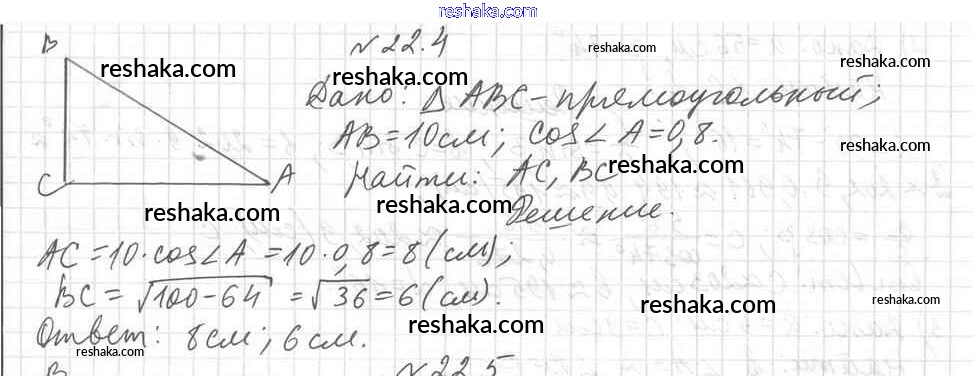 reshaka.com
B
№ 22.4
reshaka.com
reshaka.com
reshaka.com
reshaka.com
Дано: △ ABC - прямоугольный;
AB = 10 см; cos∠A = 0,8.
reshaka.com
reshaka.com
C
A
Найти: AC, BC
reshaka.com
reshaka.com
reshaka.com
Решение.
AC = 10 · cos∠A = 10 · 0,8 = 8 (см);
BC = √100-64 = √36 = 6 (см).
reshaka.com
reshaka.com
reshaka.com
Ответ: 8 см; 6 см.
reshaka.com
reshaka.com
B
№ 22.5